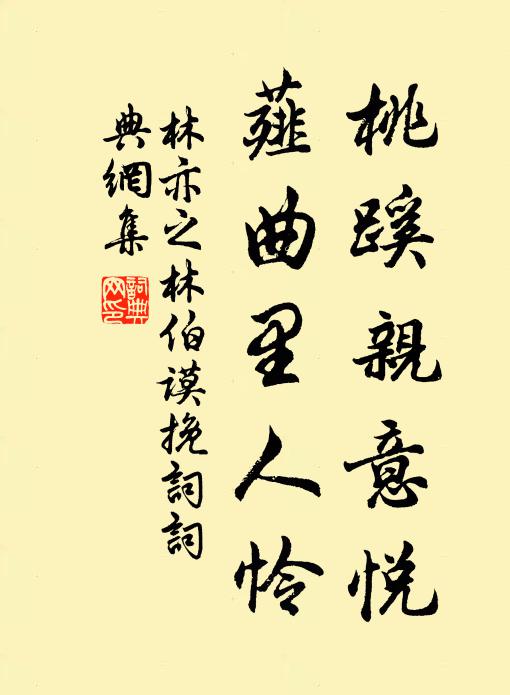 桃蹊親意悅
薤曲里人憐
林亦之林伯謨挽詞詞
典網集
詞典
网印